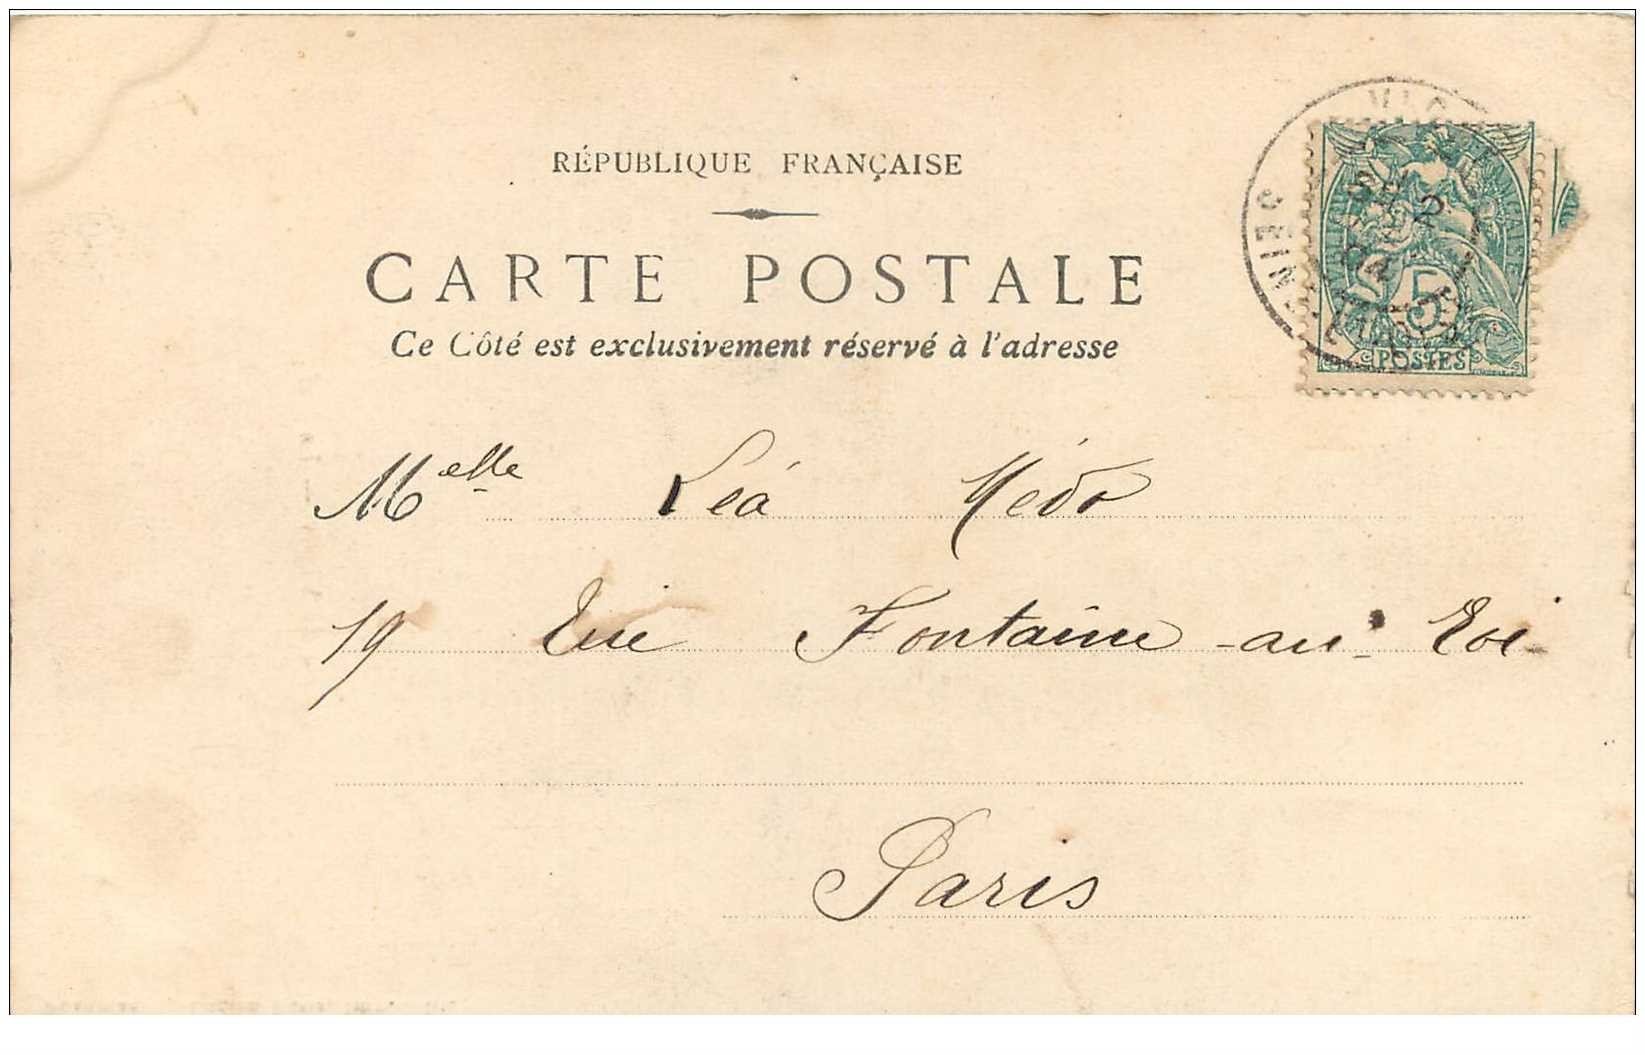 RÉPUBLIQUE FRANÇAISE
CARTE POSTALE
Ce Côté est exclusivement réservé à l'adresse
5
POSTES
Melle Léa Médo
19 Rue Fontaine-au-Roi
Paris